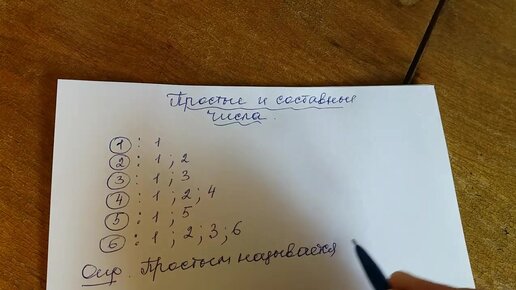 Простые и составные
числа.
1 : 1
2 : 1 ; 2
3 : 1 ; 3
4 : 1 ; 2 ; 4
5 : 1 ; 5
6 : 1 ; 2 ; 3 ; 6
Опр. Простым называется